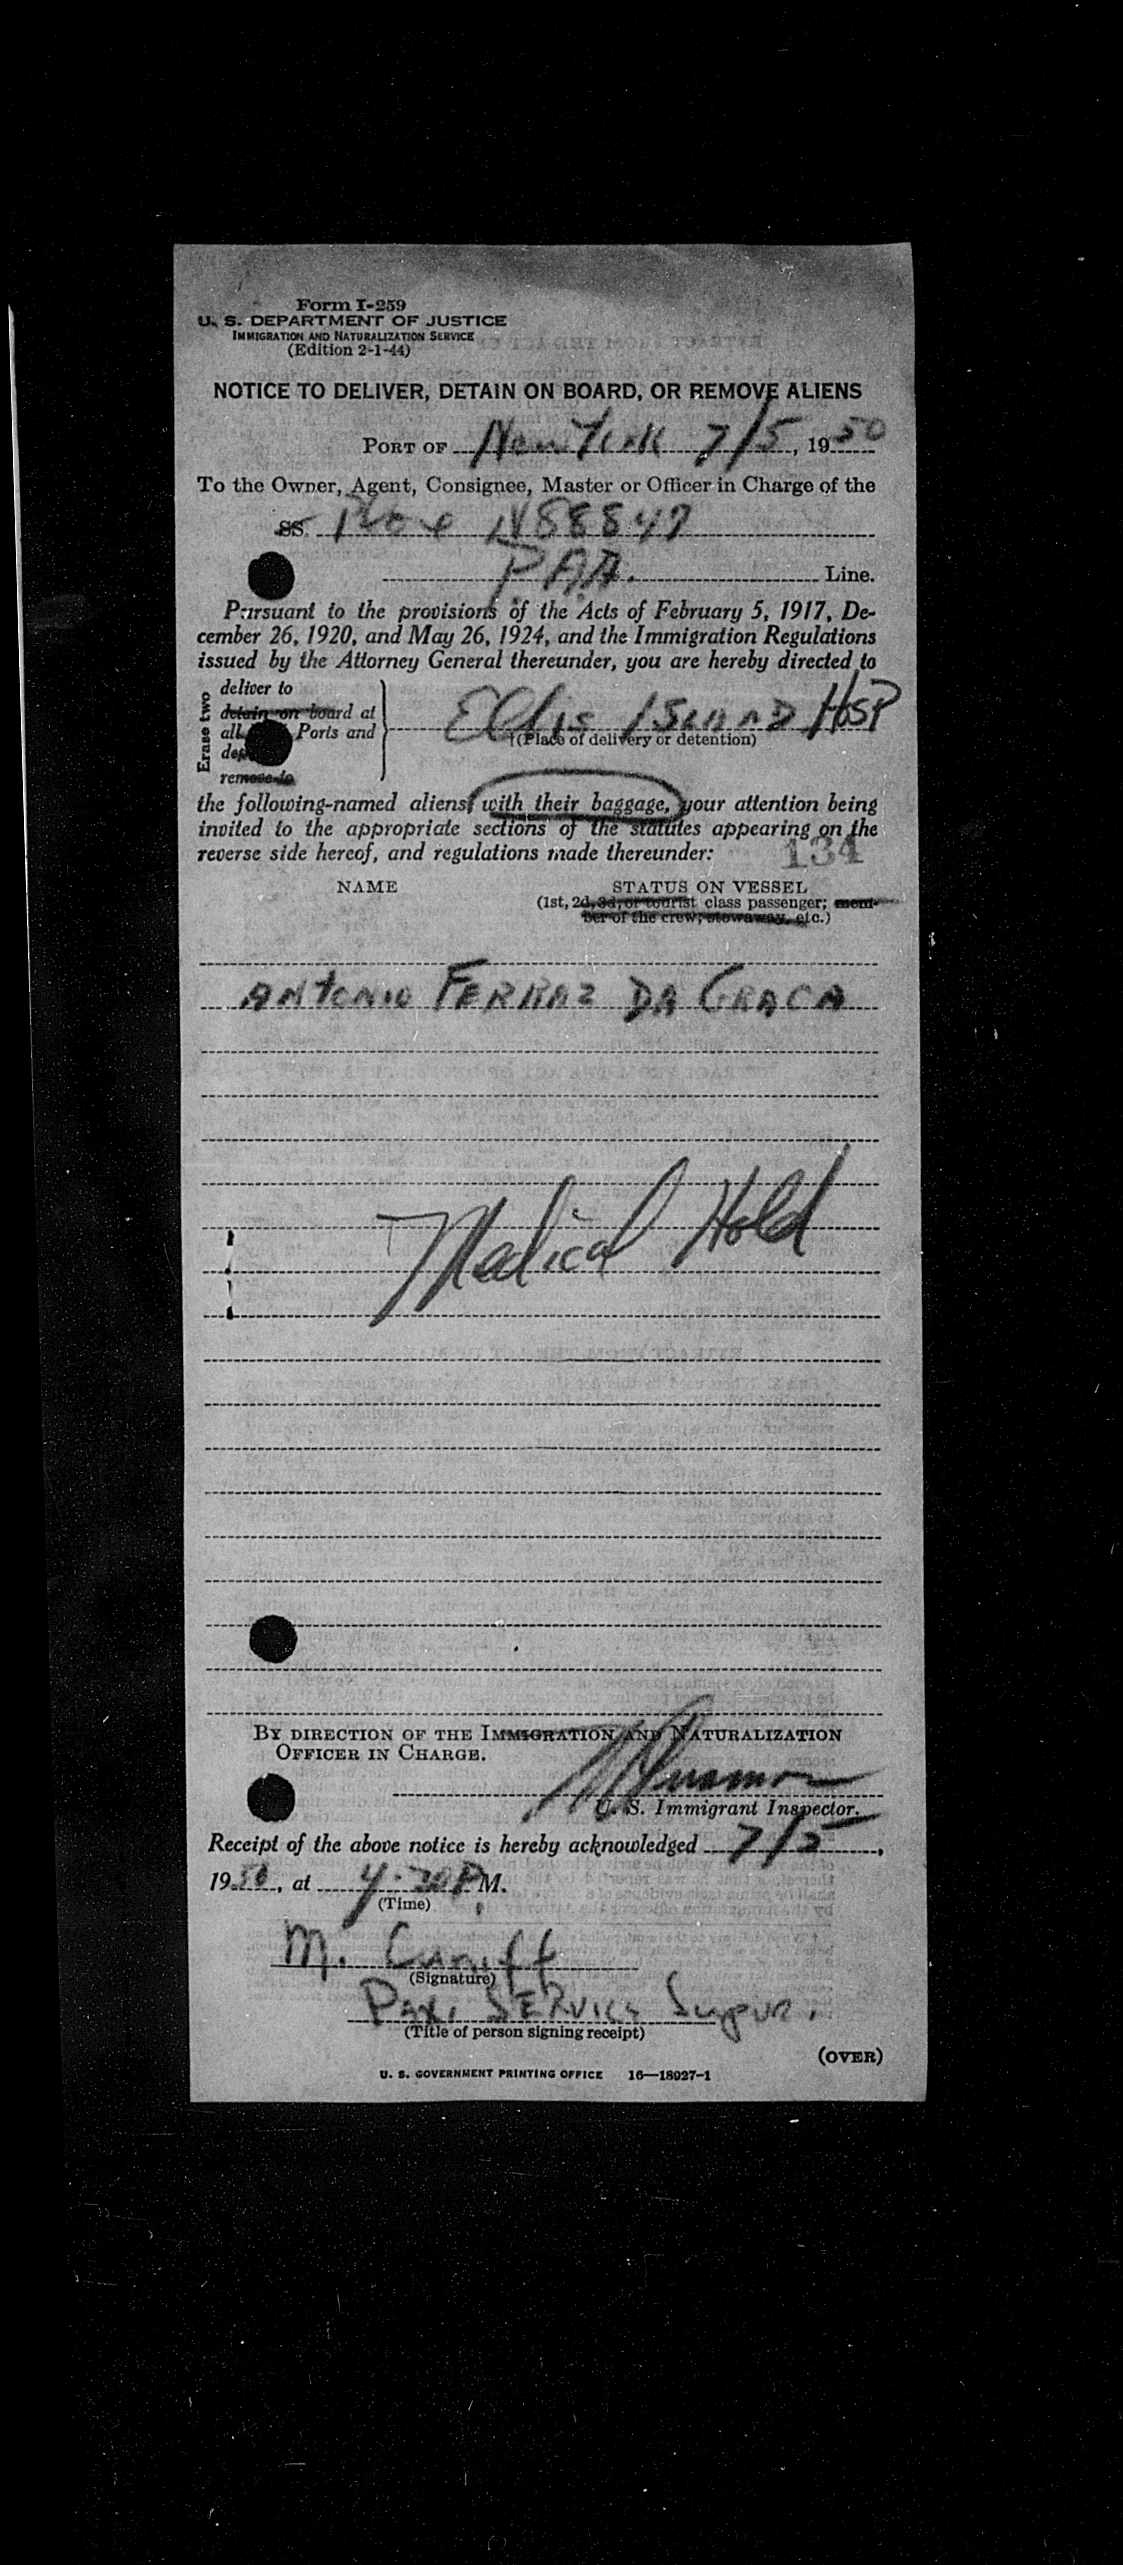 Form I-259
U. S. DEPARTMENT OF JUSTICE
IMMIGRATION AND NATURALIZATION SERVICE
(Edition 2-1-44)
NOTICE TO DELIVER, DETAIN ON BOARD, OR REMOVE ALIENS
PORT OF New York 7/5, 1950
To the Owner, Agent, Consignee, Master or Officer in Charge of the
SS. N88847
PAA. Line.
Pursuant to the provisions of the Acts of February 5, 1917, De-
cember 26, 1920, and May 26, 1924, and the Immigration Regulations
issued by the Attorney General thereunder, you are hereby directed to
Erase two
deliver to
detain on board at
all Ports and
remove to
Ellis Island Hosp
(Place of delivery or detention)
the following-named aliens, with their baggage, your attention being
invited to the appropriate sections of the statutes appearing on the
reverse side hereof, and regulations made thereunder:
134
NAME STATUS ON VESSEL
(1st, 2d, 3d, or tourist class passenger; mem-
ber of the crew; stowaway, etc.)
ANTONIO FERRAZ DA GRACA
Medical Hold
BY DIRECTION OF THE IMMIGRATION AND NATURALIZATION
OFFICER IN CHARGE.
U. S. Immigrant Inspector.
Receipt of the above notice is hereby acknowledged 7/5,
1950, at 4:30 P M.
(Time)
M. Cuniff
(Signature)
Pax. Service Supvr.
(Title of person signing receipt)
(OVER)
U. S. GOVERNMENT PRINTING OFFICE 16—18927-1